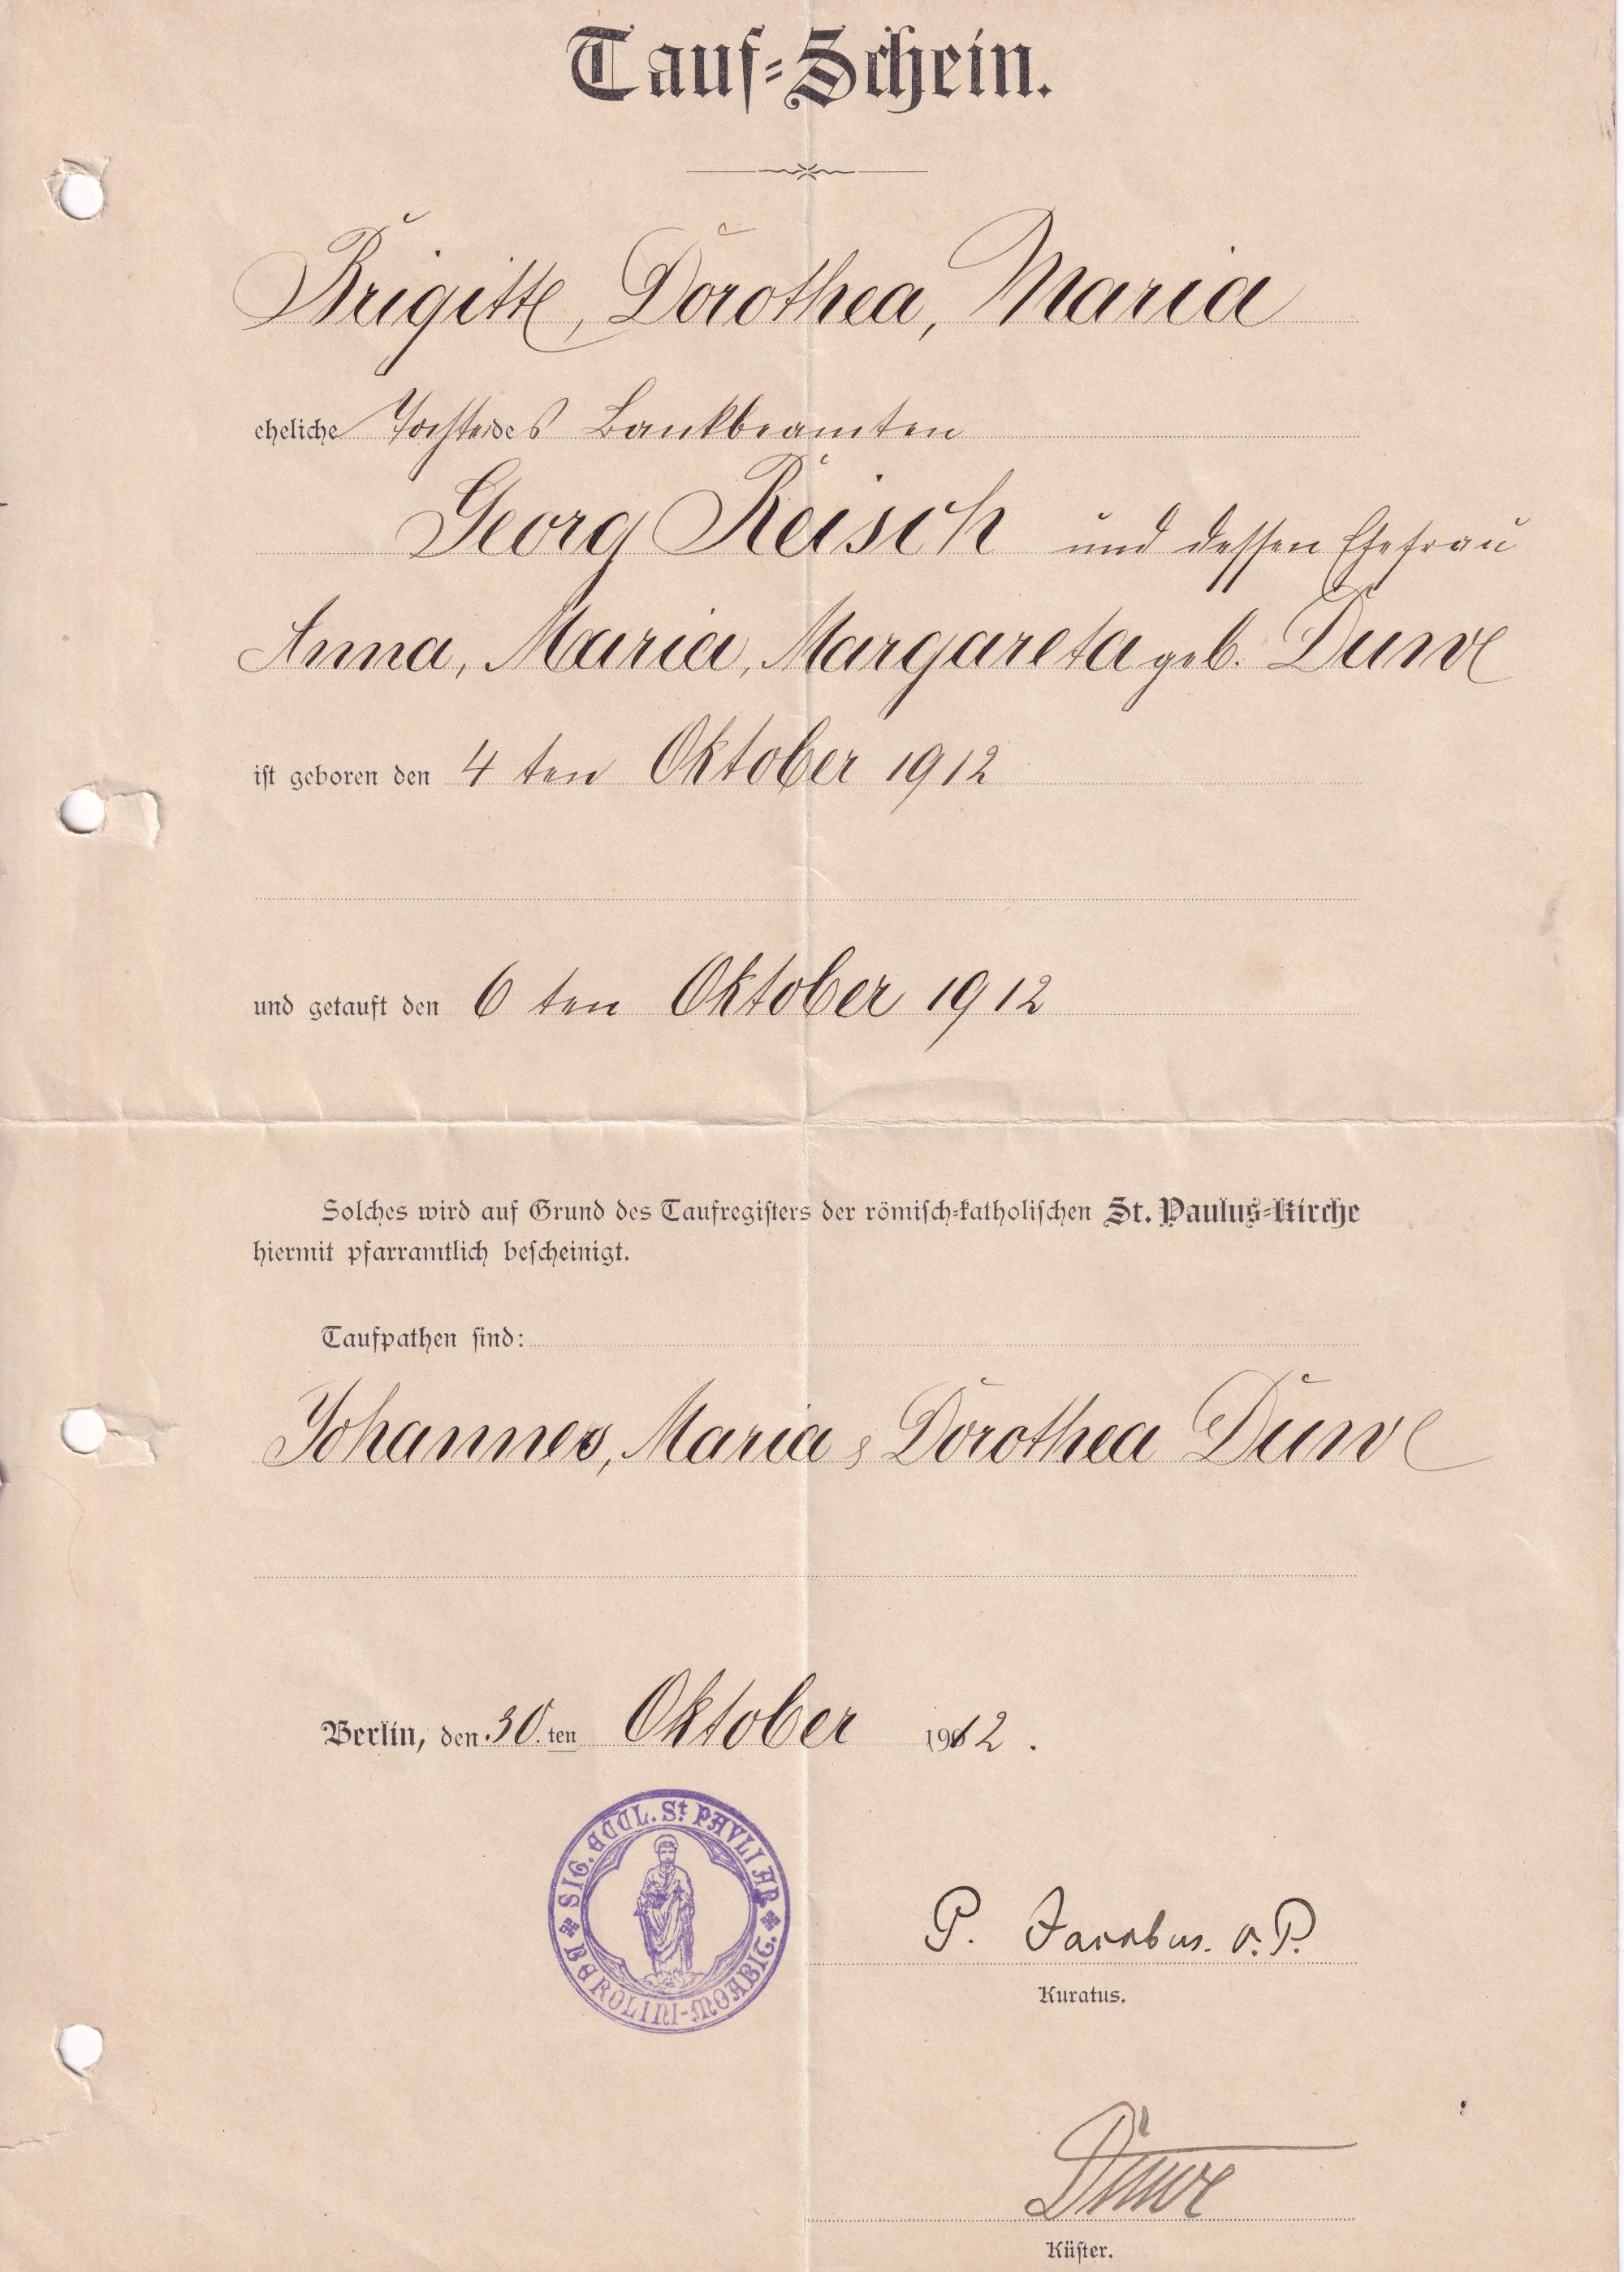 Tauf-Schein.
Brigitte, Dorothea, Maria
eheliche Tochter des Bankbeamten
Georg Reisch und dessen Ehefrau
Anna, Maria, Margareta geb. Duwe
ist geboren den 4 ten Oktober 1912
und getauft den 6 ten Oktober 1912
Solches wird auf Grund des Taufregisters der römisch-katholischen St. Paulus-Kirche
hiermit pfarramtlich bescheinigt.
Taufpathen sind:
Johannes, Maria, Dorothea Duwe
Berlin, den 30. ten Oktober 1912.
SIG. ECCL. St. PAVLI AP.
BEROLINI-MOABIT.
P. Jacobus. O.P.
Kuratus.
Duwe
Küster.